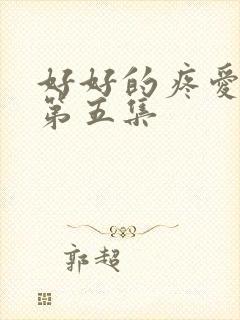 好好的疼愛
第五集
郭超